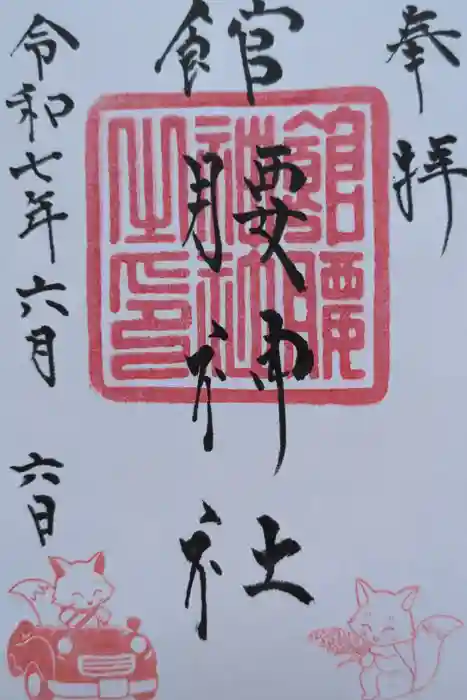 奉拝
館腰神社
館腰神社之印
令和七年六月六日